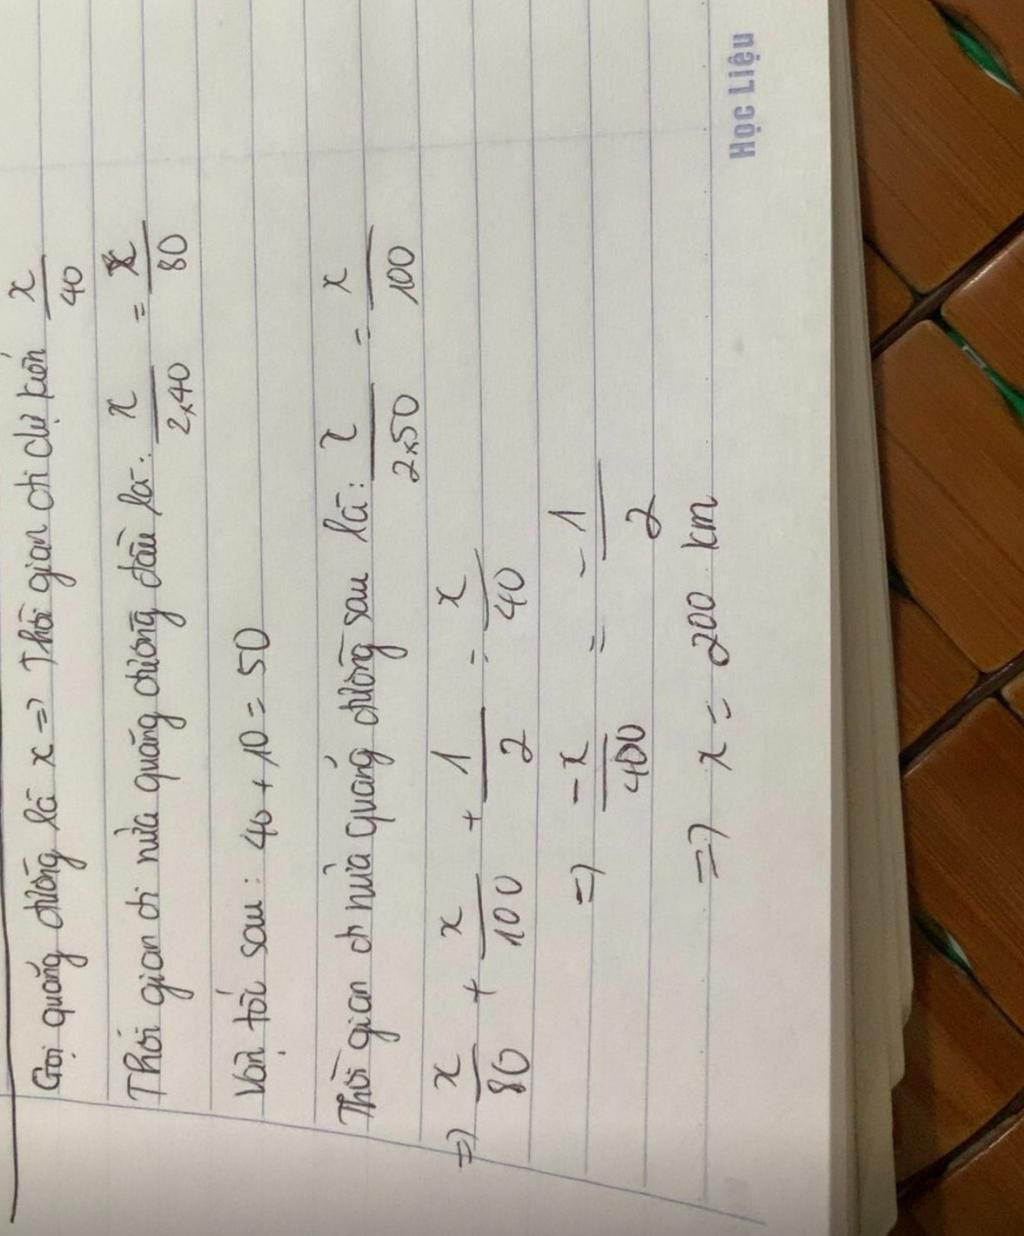 Gọi quãng đường là x => Thời gian đi dự kiến x/40
Thời gian đi nửa quãng đường đầu là: x/2x40 = x/80
Vận tốc sau: 40 + 10 = 50
Thời gian đi nửa quãng đường sau là: x/2x50 = x/100
=> x/80 + x/100 + 1/2 = x/40
=> -x/400 = -1/2
=> x = 200 km
Học Liệu